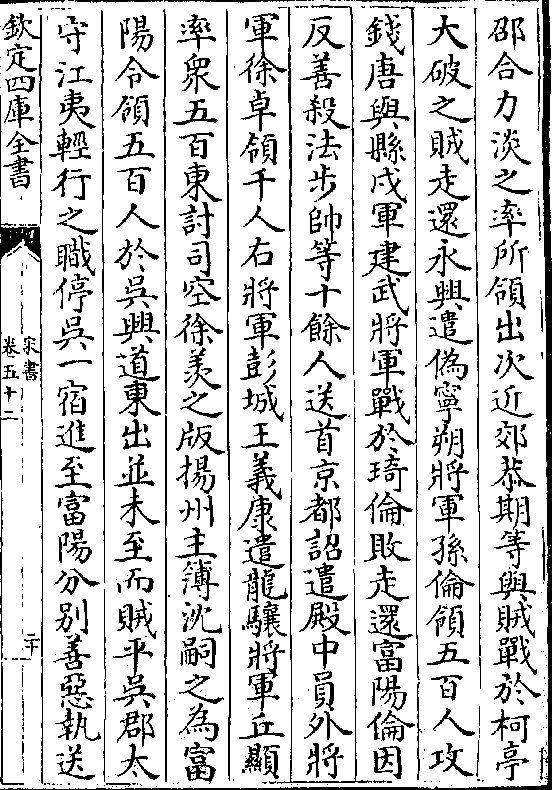 邵合力淡之率所領出次近郊恭期等與賊戰於柯亭
大破之賊走還永興遣偽寧朔將軍孫倫領五百人攻
錢唐與縣戍軍建武將軍戰於琦倫敗走還富陽倫因
反善殺法步帥等十餘人送首京都詔遣殿中員外將
軍徐卓領千人右將軍彭城王義康遣龍驤將軍丘顯
率衆五百東討司空徐羨之版揚州主簿沈嗣之為富
陽令領五百人於吳興道東出並未至而賊平吳郡太
守江夷輕行之職停吳一宿進至富陽分别善惡執送
欽定四庫全書
宋書
卷五十二
二十